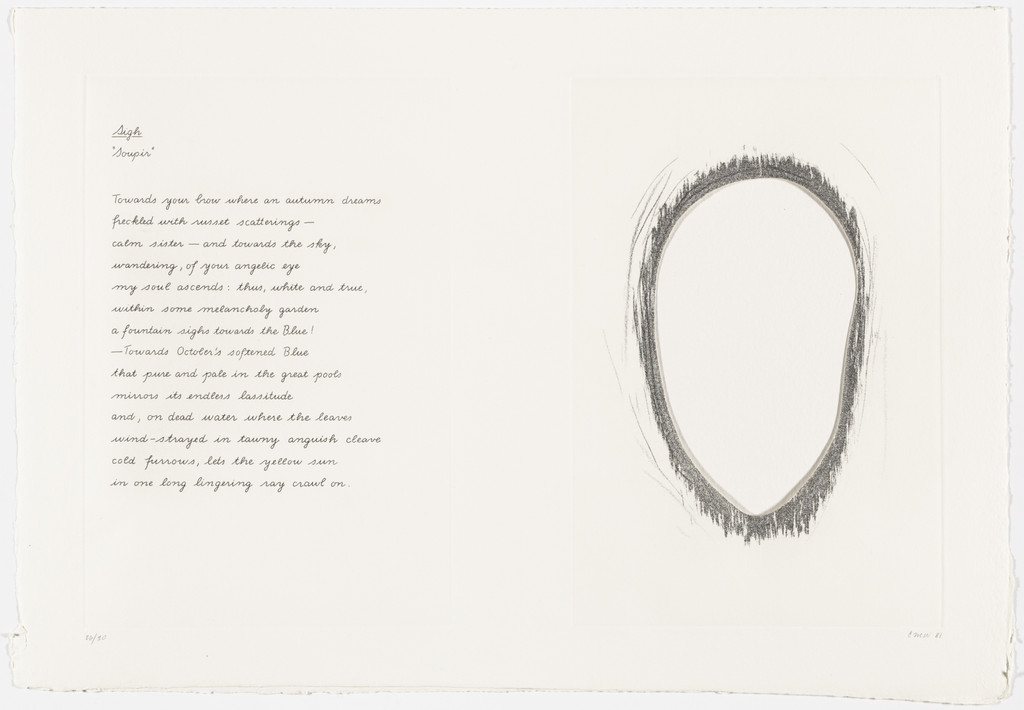 Sigh
"Soupir"
Towards your brow where an autumn dreams
freckled with russet scatterings —
calm sister — and towards the sky,
wandering, of your angelic eye
my soul ascends: thus, white and true,
within some melancholy garden
a fountain sighs towards the Blue!
—Towards October's softened Blue
that pure and pale in the great pools
mirrors its endless lassitude
and, on dead water where the leaves
wind-strayed in tawny anguish cleave
cold furrows, lets the yellow sun
in one long lingering ray crawl on.